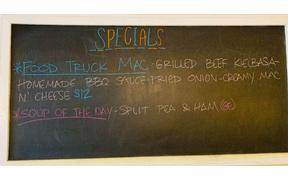 SPECIALS
*FOOD TRUCK MAC-GRILLED BEEF KIELBASA-
HOMEMADE BBQ SAUCE-FRIED ONION-CREAMY MAC
N' CHEESE $12
*SOUP OF THE DAY-SPLIT PEA & HAM